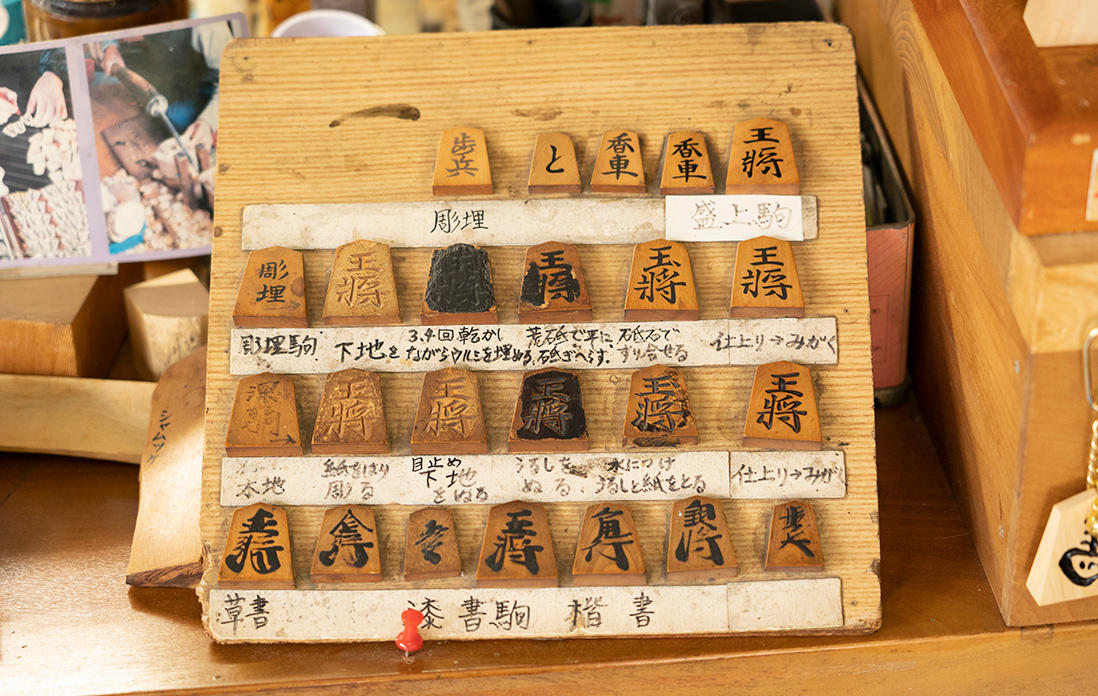 歩兵 と 香車 香車 王將
彫埋 盛上駒
彫埋 王將 王將 王將 王將
彫埋駒 下地を 3.4回乾かし 荒砥で平に 砥石で 仕上り→みがく
ながらウルシを埋める. 砥ぎへらす. すり合せる
王將 王將 王將 王將 王將
木地 紙をはり 目止め うるしを 水につけ 仕上り→みがく
彫る 下地 ぬる うるしと紙をとる
をぬる
王將 歩兵
草書 漆書駒 楷書
シャムツ